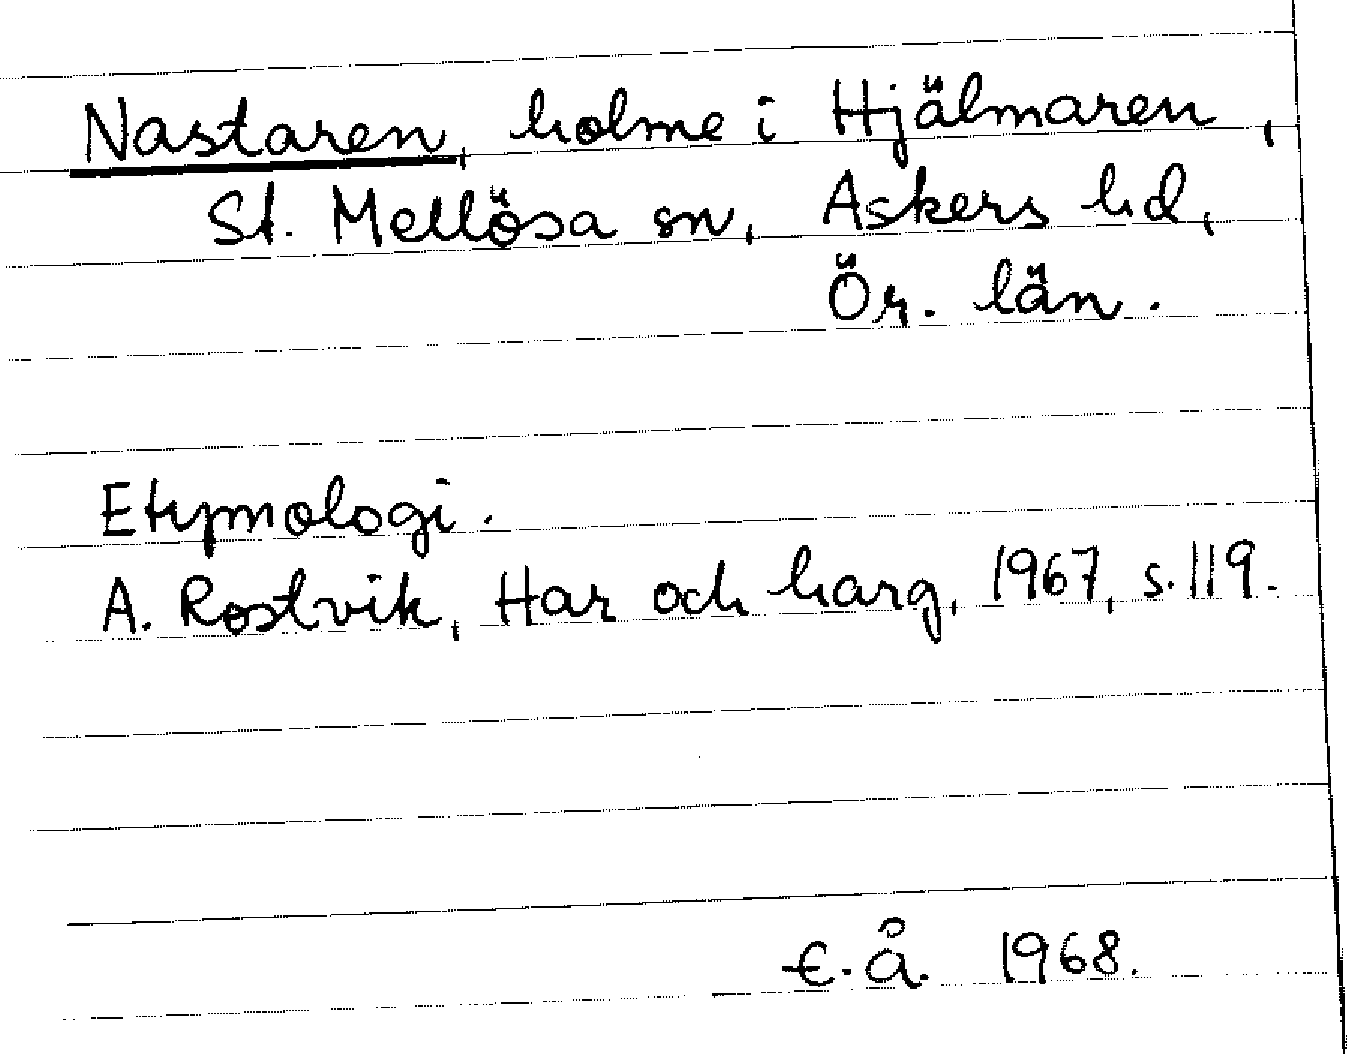 Nastaren, holme i Hjälmaren,
St. Mellösa sn, Askers hd,
Ör. län.
Etymologi.
A. Rostvik, Har och harg, 1967, s. 119.
E. Å. 1968.